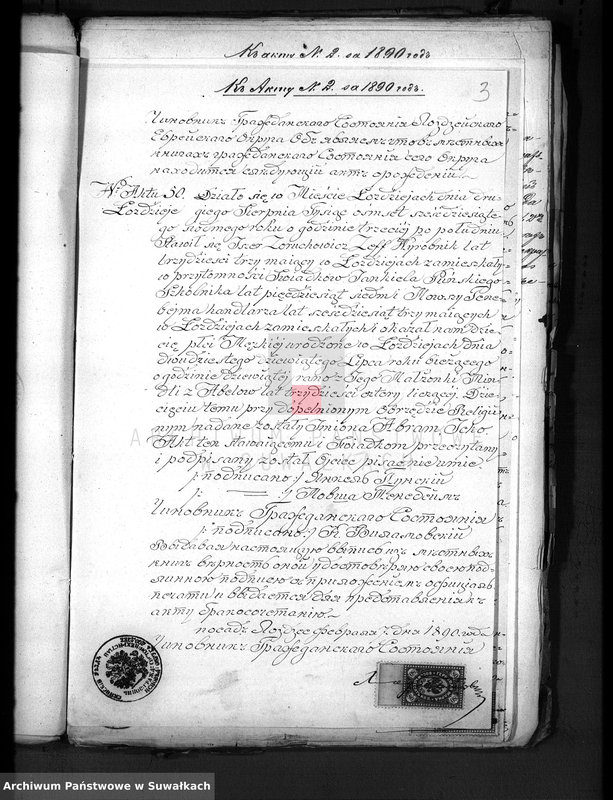 Къ акту № 2. за 1890 годъ
Къ Акту № 2. за 1890 годъ.
3
Чиновникъ Гражданскаго Состоянія Лоздзейскаго
Еврейскаго Округа Объявляетъ что въ мѣстныхъ
книгахъ гражданскаго Состоянія сего Округа
находится слѣдующій актъ о рожденіи.
№ Aktu 50. Działo się w Mieście Łoździejach dnia dru-
Łoździeje giego Sierpnia Tysiąc ośmset sześćdziesiąte-
go siódmego roku o godzinie trzeciej po południu
Stawił się Icer Zoruchowicz Leff Wyrobnik lat
trzydzieści trzy mający w Łoździejach zamieszkały
w przytomności Świadków Jankiela Puńskiego
Szkolnika lat pięćdziesiąt siedm i Mowszy Tene-
bejma handlarza lat sześćdziesiąt trzy mających
w Łoździejach zamieszkałych i okazał nam dzie-
cię płci Męzkiej urodzone w Łoździejach dnia
dwudziestego dziewiątego Lipca roku bieżącego
o godzinie dziewiątej rano z Jego Małżonki Min-
dli z Abelow lat trzydzieści cztery liczącej. Dzie-
cięciu temu przy dopełnionym obrzędzie Religij-
nym nadane zostały Imiona Abram Icko
Akt ten stawającemu i Świadkom przeczytany
i podpisany został Ojciec pisać nie umie.
/: подписано:/ Янкель Пунскій
/: — :/ Мовша Тенебеймъ
Чиновникъ Гражданскаго Состоянія
/: подписано:/ К. Вильямовскій
Выдавая настоящую выпись изъ мѣстныхъ
книгъ вѣрность оной удостовѣряю своею под-
линною подписью съ приложеніемъ официальн.
печати и выдается для предоставленія къ
акту бракосочетанія.
посадъ Лоздзее Февраля 7. дня 1890 года
Чиновникъ Гражданскаго Состоянія
Archiwum Państwowe w Suwałkach